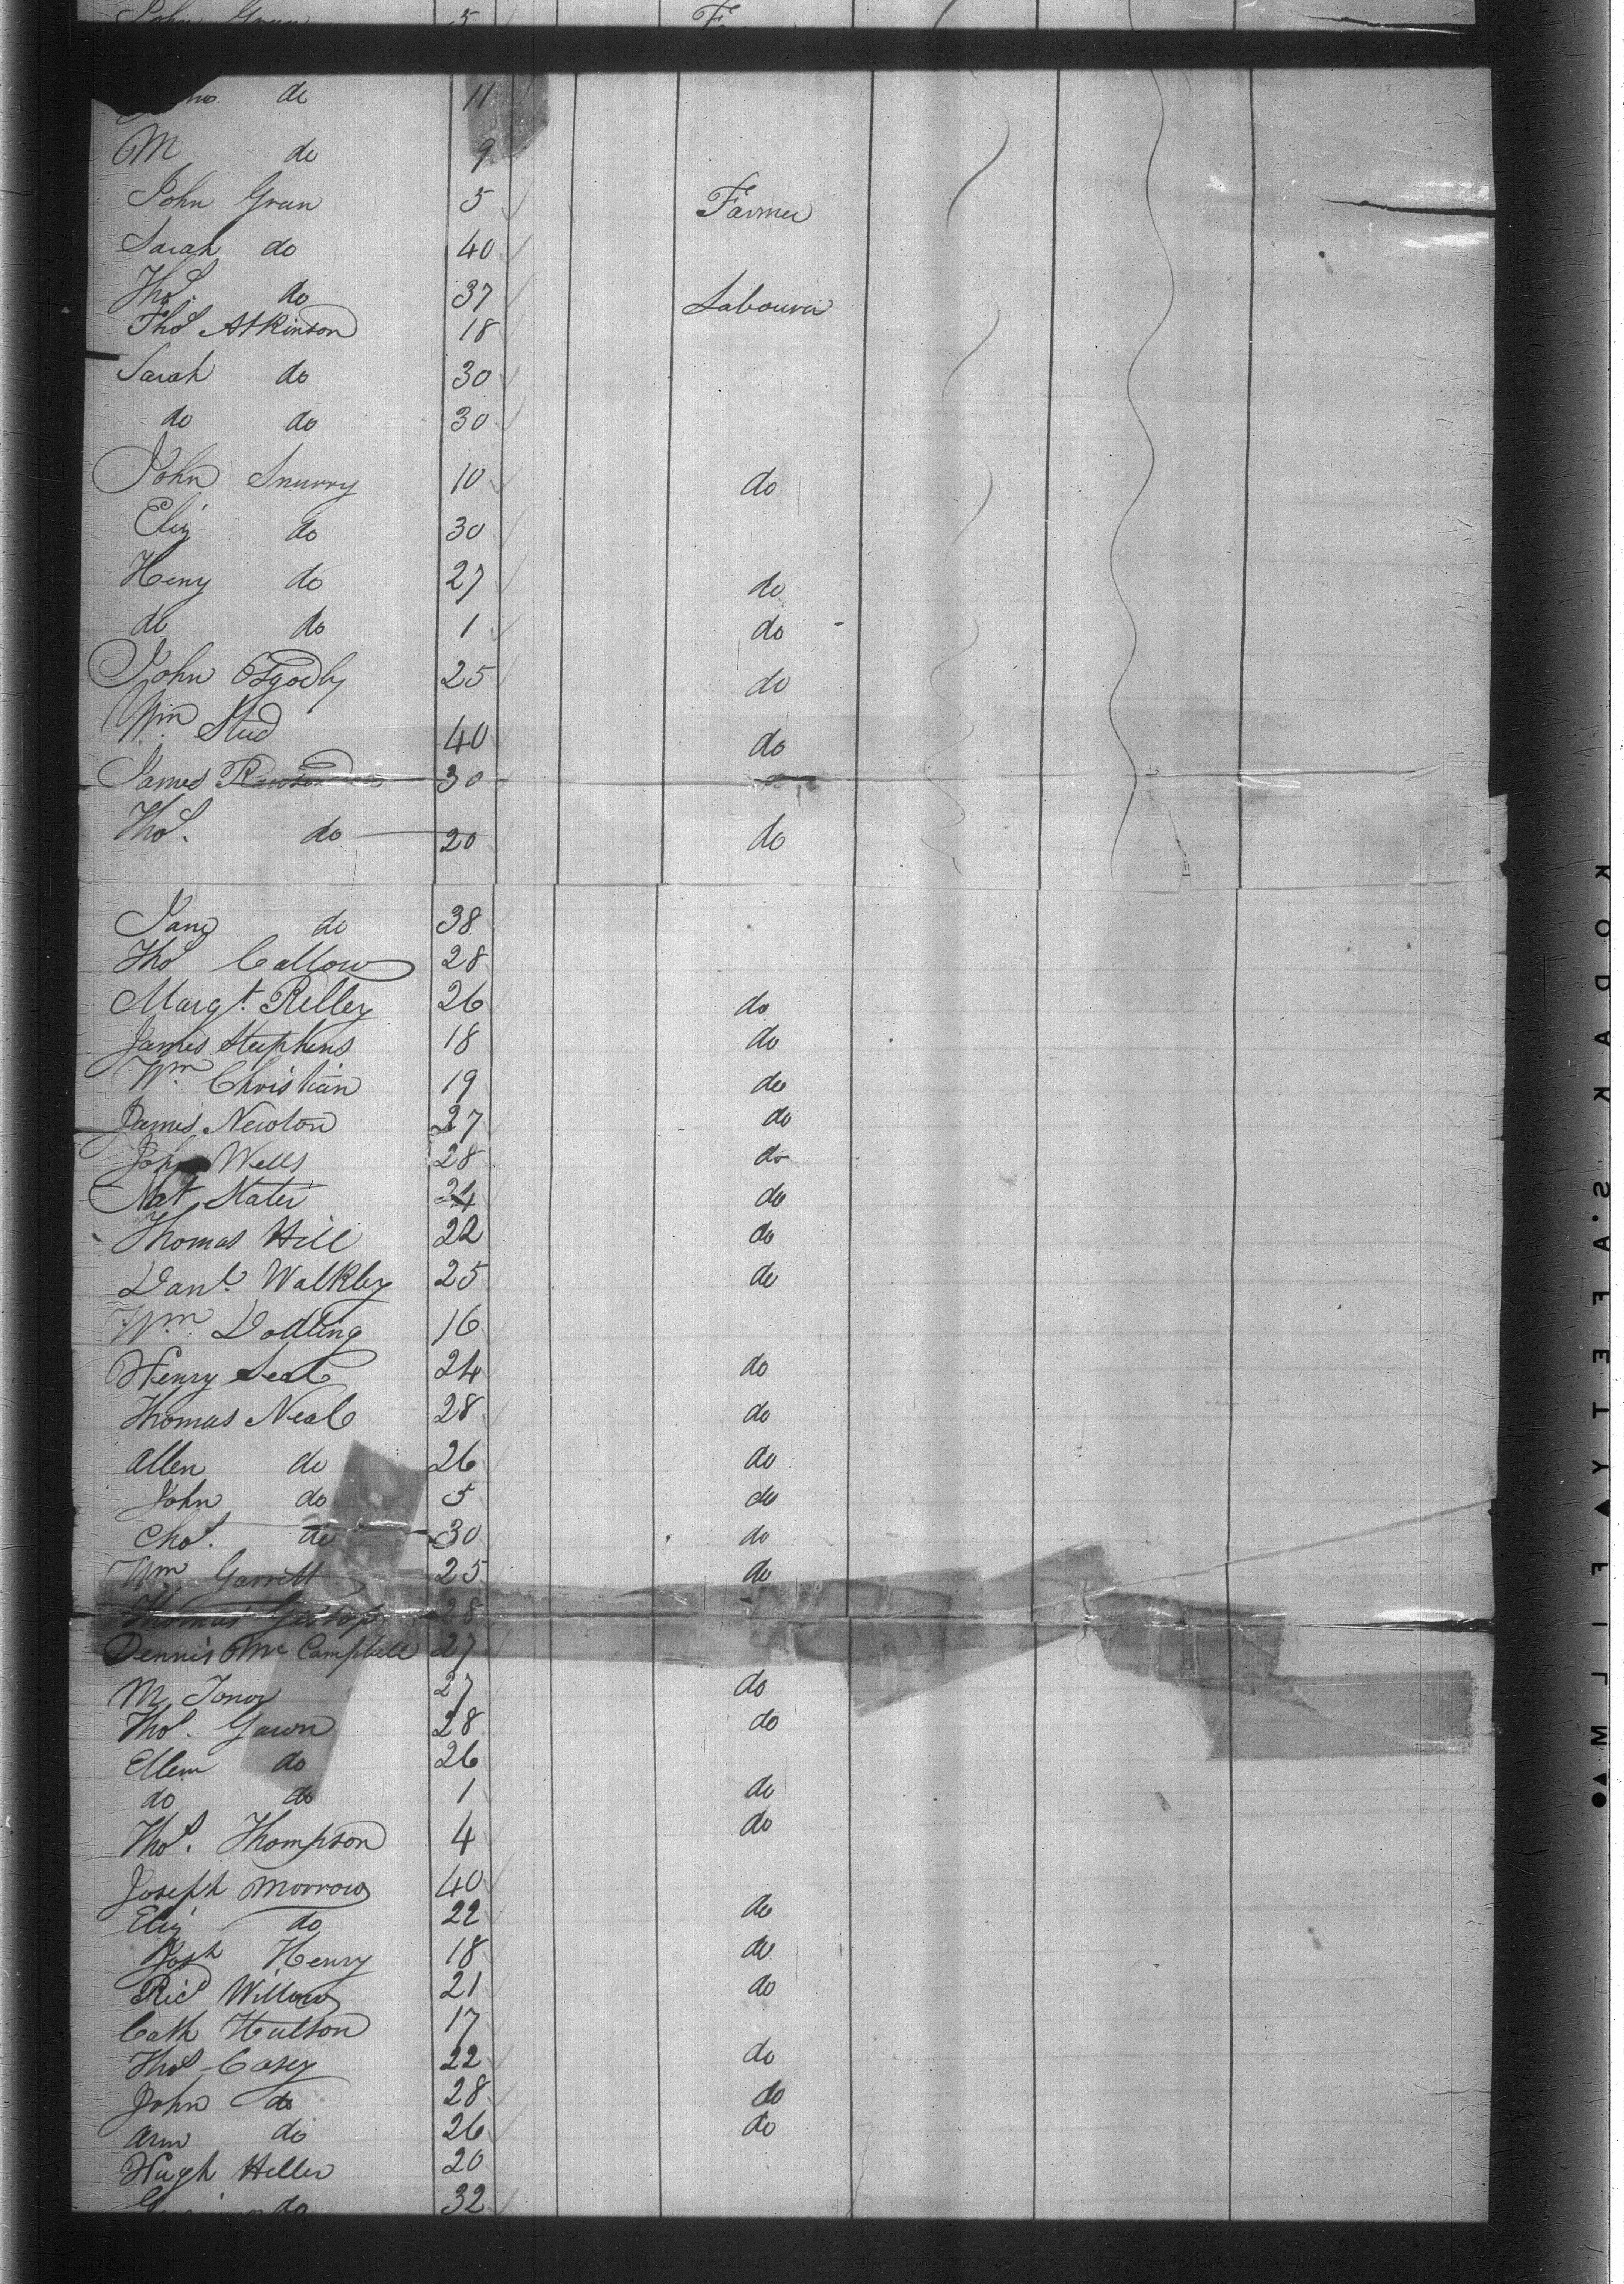 John Grun 5
do 11
M do 9
John Grun 5 Farmer
Sarah do 40
Thos. do 37 Labourer
Thos Atkinson 18
Sarah do 30
do do 30
John Snurry 10 do
Eliz do 30
Heny do 27 do
do do 1 do
John Osgodby 25 do
Wm Stud 40 do
James 30
Thos. do 20 do
Jane do 38
Thos Callow 28
Margt. Relley 26 do
James Stephens 18 do
Wm Christian 19 do
James Newton 27 do
John Wells 28 do
Nat Slater 24 do
Thomas Hill 22 do
Danl. Walkley 25 do
Wm Dodling 16
Henry Seal 24 do
Thomas Neal 28 do
Allen do 26 do
John do 5 do
Chas. do 30 do
Wm Garrett 25 do
Thomas 28
Dennis Mc Campbell 27
M 27 do
Thos. Gawn 28 do
Ellen do 26
do do 1 do
Thos. Thompson 4 do
Joseph Morrow 40
Eliz do 22 do
Josh Henry 18 do
Ricd Willows 21 do
Cath Hutson 17
Thos Casey 22 do
John do 28 do
Ann do 26 do
Hugh Heller 20
do 32
KODAK S.'A F E T Y F I L M